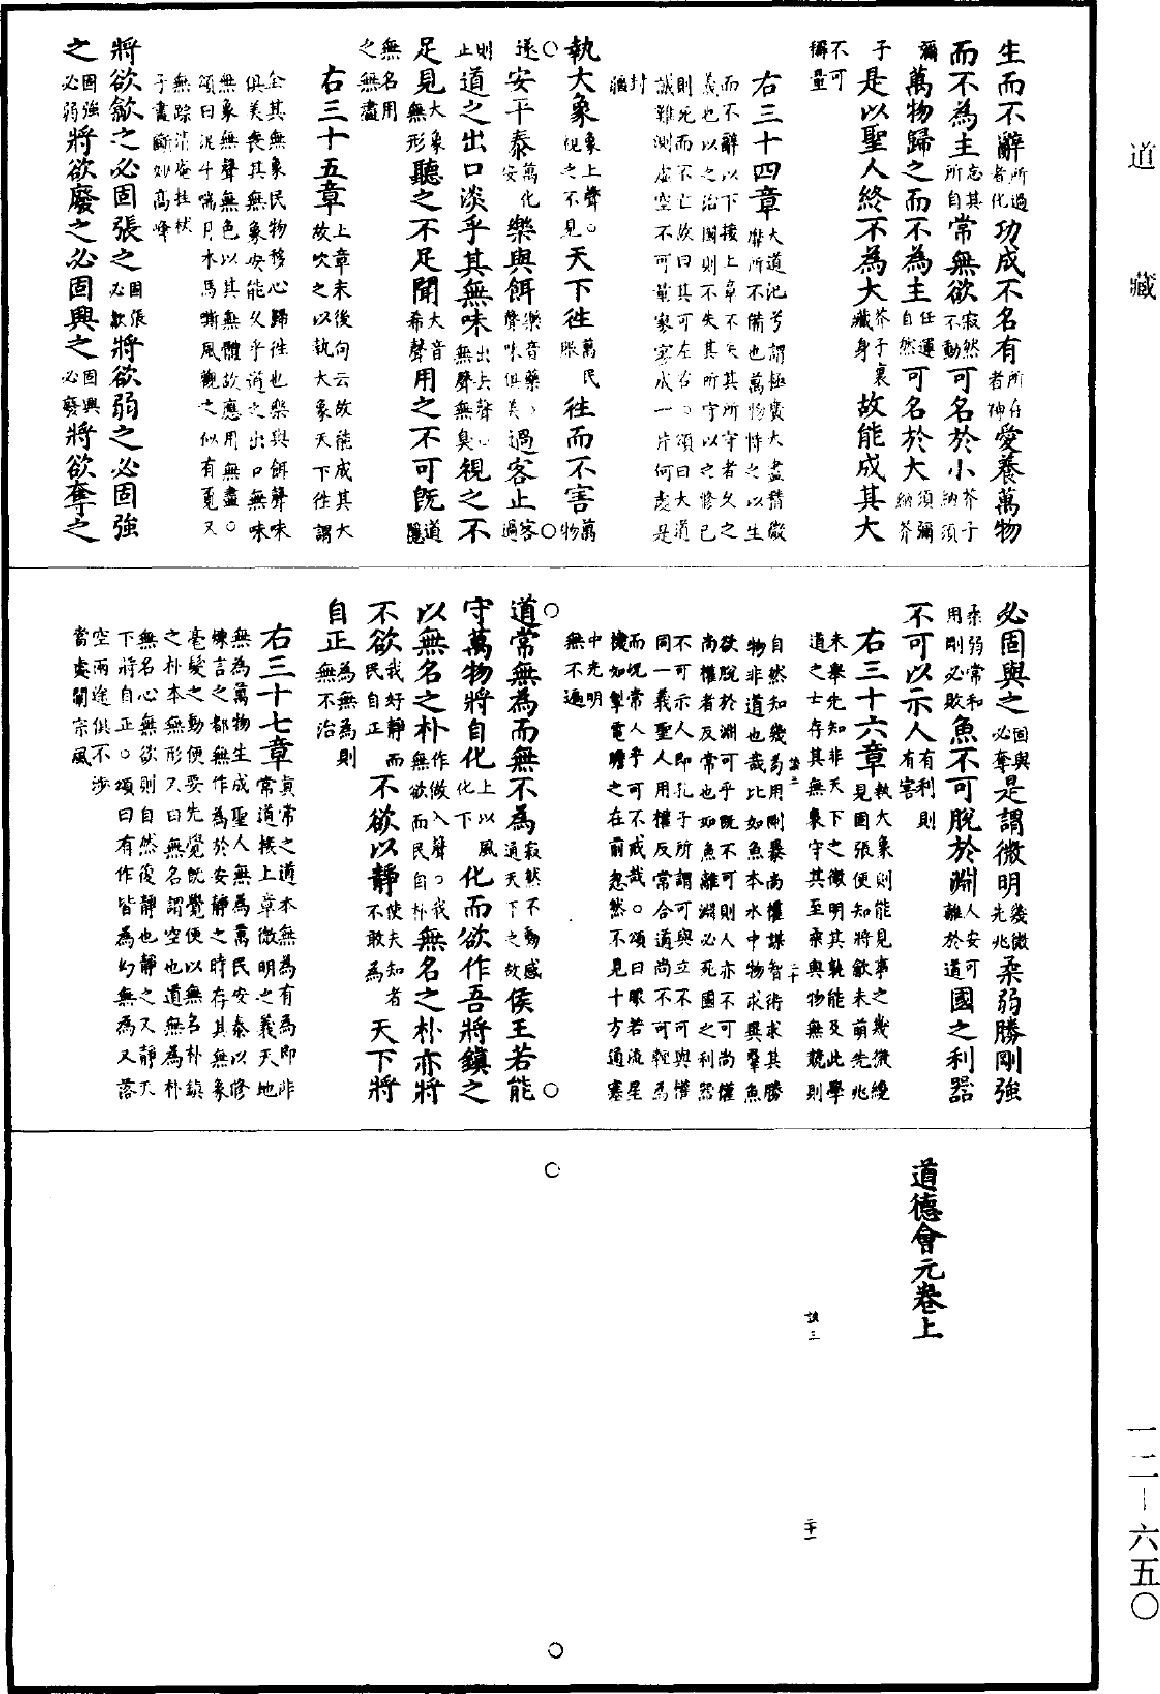 道藏
生而不辭所過者化功成不名有所存者神愛養萬物
而不為主忘其所自常無欲寂然不動可名於小芥子納須
彌萬物歸之而不為主任運自然可名於大須彌納芥
子是以聖人終不為大芥子裏藏身故能成其大
不可稱量
右三十四章大道汎兮謂極廣大盡精微靡所不備也萬物恃之以生
而不辭以下接上章不失其所守者久之
義也以之治國則不失其所守以之修己
則死而不亡故曰其可左右。頌曰大道
誠難測虛空不可量家家成一片何處是
封疆
執大象象上聲。視之不見天下徃萬民皈徃而不害萬物
遂安平泰萬化安樂與餌樂音藥。聲味俱美過客止客過
則止道之出口淡乎其無味出去聲。無聲無臭視之不
足見大象無形聽之不足聞大音希聲用之不可既道隱
無名用之無盡
右三十五章上章末後句云故能成其大故次之以執大象天下徃謂
全其無象民物移心歸徃也樂與餌聲味
俱美喪其無象安能久乎道之出口無味
無象無聲無色以其無體故應用無盡。
頌曰泥牛喘月木馬嘶風觀之似有覓又
無踪清庵拄杖
子畫斷妙高峰
將欲歙之必固張之固張必歙將欲弱之必固強
之固強必弱將欲廢之必固興之固興必廢將欲奪之
必固與之固與必奪是謂微明幾微先兆柔弱勝剛強
柔弱常和用剛必敗魚不可脫於淵人安可離於道國之利器
不可以示人有利則有害
右三十六章執大象則能見事之幾微纔見固張便知將歙未萌先兆
未舉先知非天下之微明其孰能及此學
道之士存其無象守其至柔與物無競則
自然知幾苟用剛暴尚權謀智術求其勝
物非道也哉比如魚本水中物求異羣魚
欲脫於淵可乎既不可則人亦不可尚權
尚權者反常也如魚離淵必死國之利器
不可示人即孔子所謂可與立不可與權
同一義聖人用權反常合道尚不可輕為
而況常人乎可不戒哉。頌曰眼若流星
機如掣電瞻之在前忽然不見十方通塞
中光明無不遍
道常無為而無不為寂然不動感通天下之故侯王若能
守萬物將自化上以風化下化而欲作吾將鎮之
以無名之朴作做入聲。我無欲而民自朴無名之朴亦將
不欲我好靜而民自正不欲以靜使夫知者不敢為天下將
自正為無為則無不治
右三十七章真常之道本無為有為即非常道接上章微明之義天地
無為萬物生成聖人無為萬民安泰以修
煉言之都無作為於安靜之時存其無象
毫髮之動便要先覺既覺便以無名朴鎮
之朴本無形又曰無名謂空也道無為朴
無名心無欲則自然復靜也靜之又靜天
下將自正。頌曰有作皆為幻無為又落
空兩途俱不涉
當處闡宗風
道德會元卷上
二十一
一二-六五〇